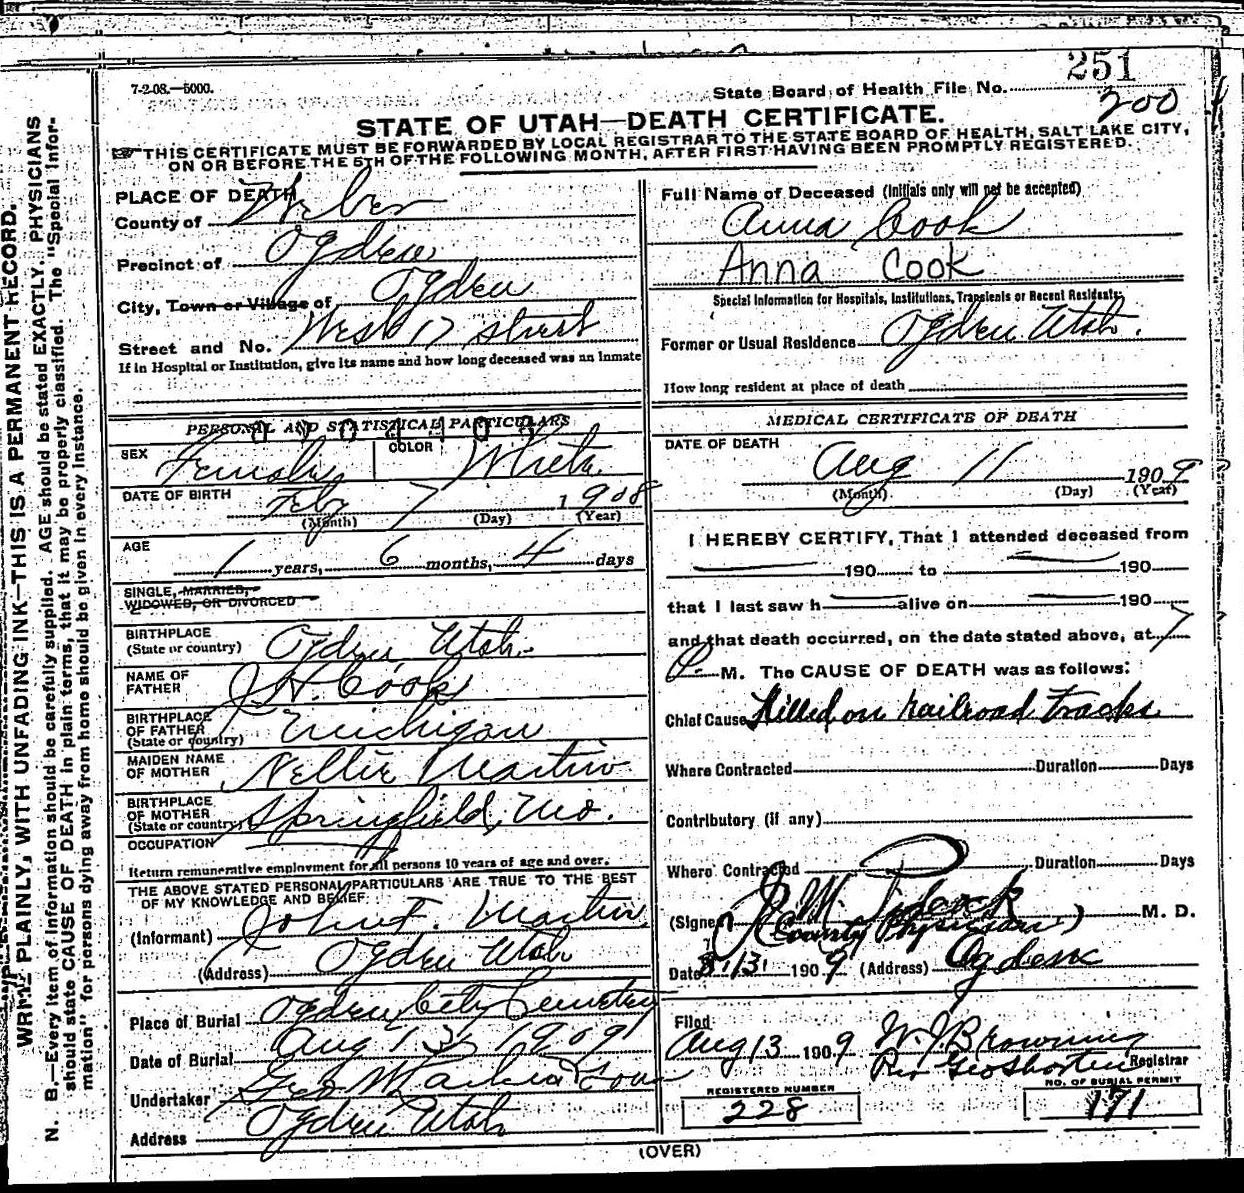 251
7-2-08.—5000.
State Board of Health File No.
200
STATE OF UTAH—DEATH CERTIFICATE.
THIS CERTIFICATE MUST BE FORWARDED BY LOCAL REGISTRAR TO THE STATE BOARD OF HEALTH, SALT LAKE CITY,
ON OR BEFORE THE 5TH OF THE FOLLOWING MONTH, AFTER FIRST HAVING BEEN PROMPTLY REGISTERED.
WRITE PLAINLY, WITH UNFADING INK—THIS IS A PERMANENT RECORD.
N. B.—Every item of information should be carefully supplied. AGE should be stated EXACTLY. PHYSICIANS
should state CAUSE OF DEATH in plain terms, that it may be properly classified. The "Special Infor-
mation" for persons dying away from home should be given in every instance.
PLACE OF DEATH
County of Weber
Precinct of Ogden
City, Town or Village of Ogden
Street and No. West 17 street
If in Hospital or Institution, give its name and how long deceased was an Inmate
PERSONAL AND STATISTICAL PARTICULARS
SEX Female COLOR White
DATE OF BIRTH Feby 7 1908
(Month) (Day) (Year)
AGE 1 years, 6 months, 4 days
SINGLE, MARRIED,
WIDOWED, OR DIVORCED
BIRTHPLACE
(State or country) Ogden, Utah.
NAME OF
FATHER J. H. Cook
BIRTHPLACE
OF FATHER
(State or country) Michigan
MAIDEN NAME
OF MOTHER Nellie Martin
BIRTHPLACE
OF MOTHER
(State or country) Springfield, Mo.
OCCUPATION
Return remunerative employment for all persons 10 years of age and over.
THE ABOVE STATED PERSONAL PARTICULARS ARE TRUE TO THE BEST
OF MY KNOWLEDGE AND BELIEF
(Informant) John T. Martin
(Address) Ogden Utah
Place of Burial Ogden City Cemetery
Date of Burial Aug 13, 1909
Undertaker Geo
Address Ogden Utah
Full Name of Deceased (Initials only will not be accepted)
Anna Cook
Anna Cook
Special Information for Hospitals, Institutions, Transients or Recent Residents:
Former or Usual Residence Ogden Utah.
How long resident at place of death
MEDICAL CERTIFICATE OF DEATH
DATE OF DEATH
Aug 11 1909
(Month) (Day) (Year)
I HEREBY CERTIFY, That I attended deceased from
190 to 190
that I last saw h alive on 190
and that death occurred, on the date stated above, at 7
P. M. The CAUSE OF DEATH was as follows:
Chief Cause Killed on railroad tracks
Where Contracted Duration Days
Contributory (if any)
Where Contracted Duration Days
(Signed) M. D.
(County Physician)
Date 8. 13. 1909 (Address) Ogden
Filed
Aug 13 1909 W. J. Browning
Per Geo Shorten Registrar
REGISTERED NUMBER
228
NO. OF BURIAL PERMIT
171
(OVER)